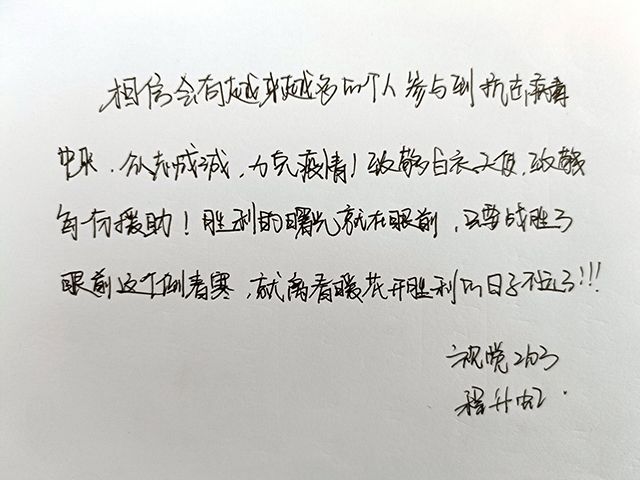 相信会有越来越多的个人参与到抗击病毒
中来．众志成城，力克疫情！致敬白衣天使，致敬
每一份援助！胜利的曙光就在眼前，只要战胜了
眼前这个倒春寒，就离春暖花开胜利的日子不远了!!!
视觉2103
程